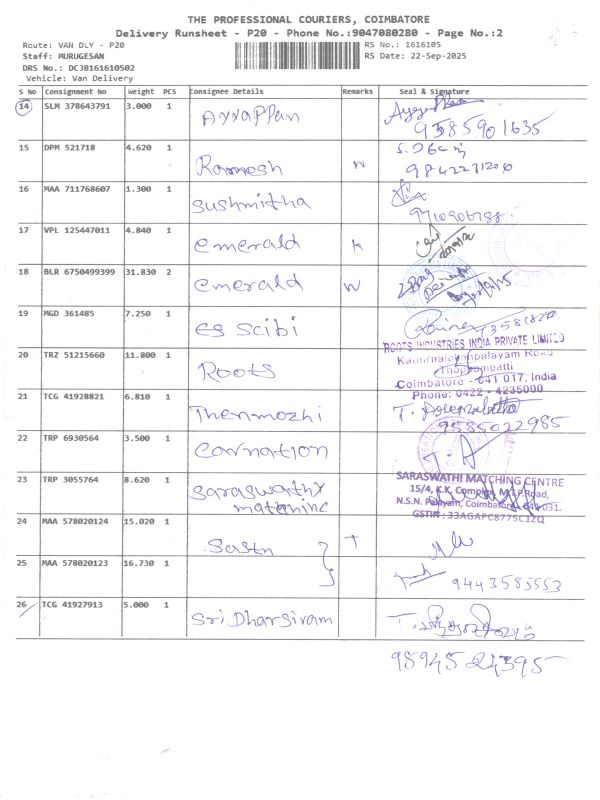 THE PROFESSIONAL COURIERS, COIMBATORE
Delivery Runsheet - P20 - Phone No.:9047080280 - Page No.:2
Route: VAN DLY - P20 RS No.: 1616105
Staff: MURUGESAN RS Date: 22-Sep-2025
DRS No.: DCJB161610502
Vehicle: Van Delivery
S No Consignment No Weight PCS Consignee Details Remarks Seal & Signature
14 SLM 378643791 3.000 1 Ayyappan
9585901635
15 DPM 521718 4.620 1 Ramesh W
16 MAA 711768607 1.300 1 Sushmitha
17 VPL 125447011 4.840 1 emerald K
18 BLR 6750499399 31.830 2 emerald W
19 MGD 361485 7.250 1 es scibi
20 TRZ 51215660 11.800 1 Roots
ROOTS INDUSTRIES INDIA PRIVATE LIMITED
Thoppampatti
Coimbatore - 641 017. India
Phone: 0422 - 4235000
21 TCG 41928821 6.810 1 Thenmozhi
9585022985
22 TRP 6930564 3.500 1 Carnation
23 TRP 3055764 8.620 1 Saraswathy
SARASWATHI MATCHING CENTRE
15/4, K.K. Complex, M.T.P. Road,
N.S.N. Palayam, Coimbatore - 641 031.
GSTIN : 33AGAPC8775C1ZQ
24 MAA 578020124 15.020 1 T
25 MAA 578020123 16.730 1
9443583553
26 TCG 41927913 5.000 1 Sri Dharsivam
9894524395